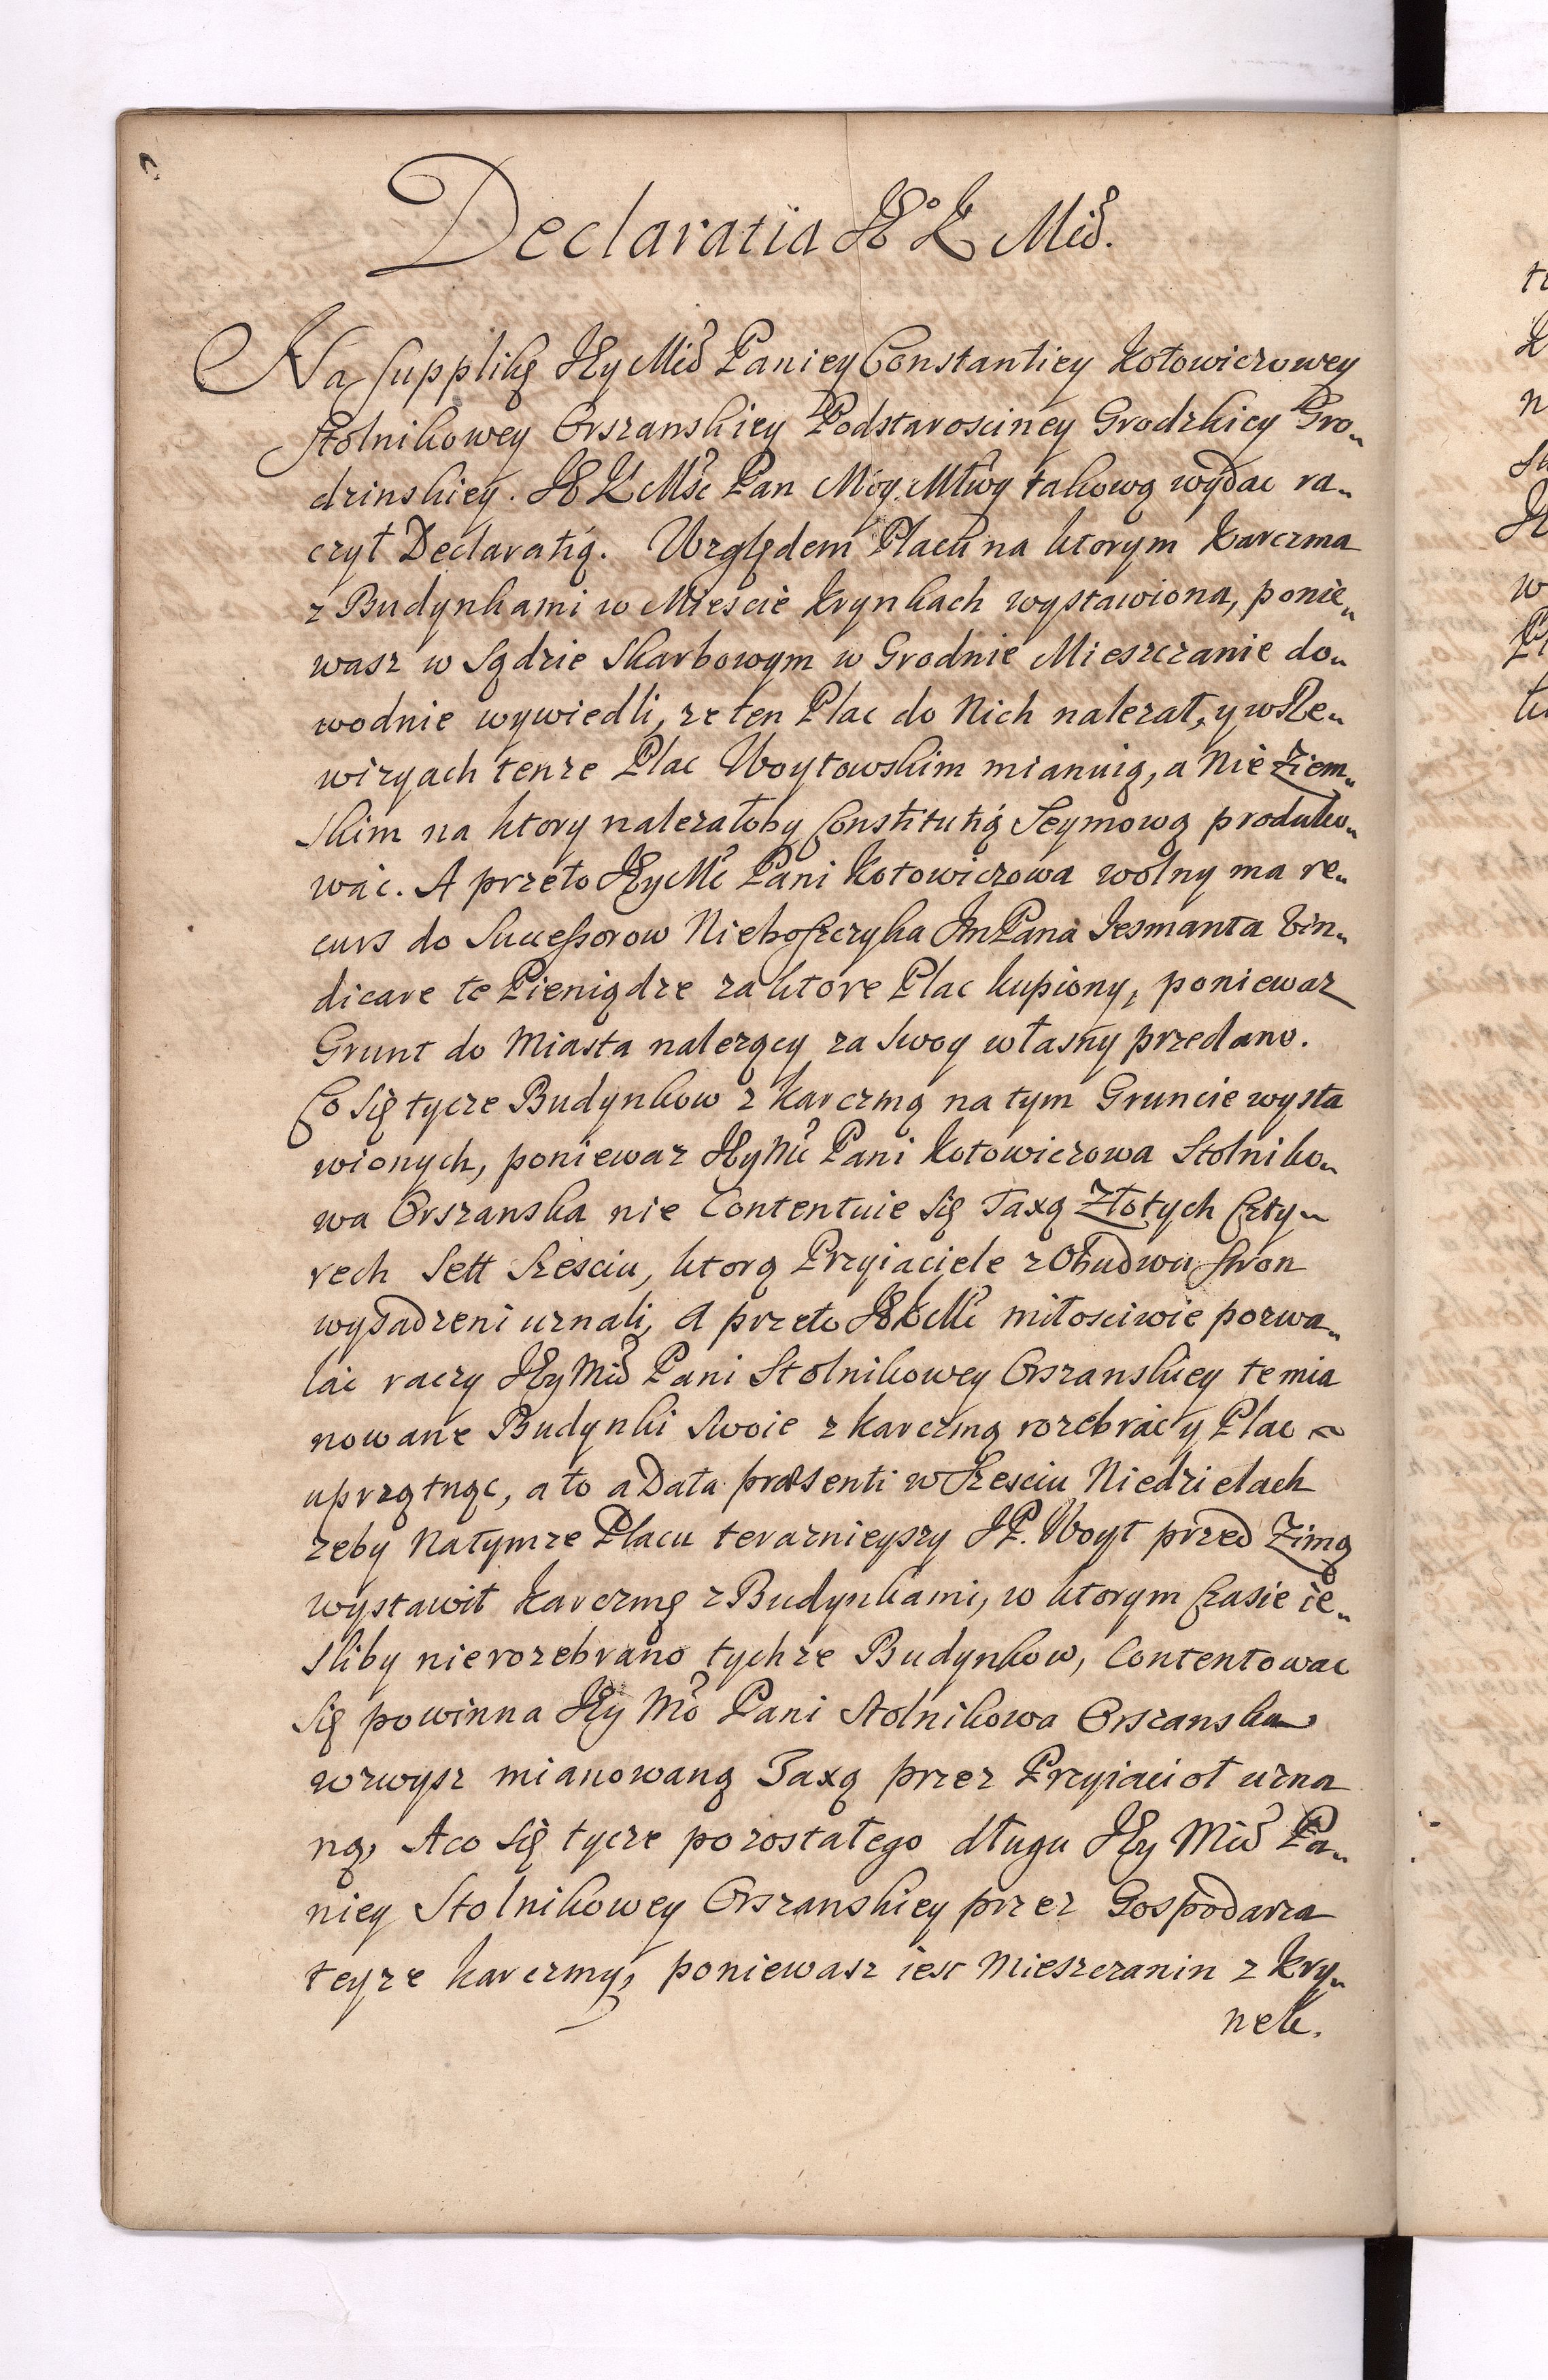 Declaratia JKo K Mći.
Na suppliką JEy Mći Paniey Constantiey Kotowiczowey
Stolnikowey Orszanskiey Podstarosciney Grodzkiey Gro„
dzinskiey. JK K Mść Pan Moy Młwy takową wydac ra„
czył Declaratią. Względem Placu na ktorym Karczma
z Budynkami w Miescie Krynkach wystawiona, ponie„
wasz w Sądzie Skarbowym w Grodnie Mieszczanie do„
wodnie wywiedli, ze ten Plac do Nich nalezał, y w Re„
wizyach tenze Plac Woytowskim mianuią, a Nie Ziem„
skim na ktory nalezałoby Constitutią Seymową produko„
wać. A przeto JEy Mć Pani Kotowiczowa wolny ma re„
curs do Successorow Nieboszczyka Jm Pana Jesmanta vin„
dicare te Pieniądze za ktore Plac kupiony, poniewaz
Grunt do Miasta nalezący za swoy własny przedano.
Co się tycze Budynkow z karczmą na tym Gruncie wysta
wionych, poniewaz JEy Mć Pani Kotowiczowa Stolniko„
wa Orszanska nie Contentuie się Taxą Złotych Czty„
rech Sett Szesciu, ktorą Przyiaciele z Obudwu stron
wysadzeni uznali, A przeto JK K Mć miłosciwie pozwa„
lać raczy JEy Mći Pani Stolnikowey Orszanskiey te mia
nowane Budynki swoie z karczmą rozebrać y Plac
uprzątnąc, a to a Data præsenti w Szesciu Niedzielach
zeby Na tymze Placu terazniejszy JP. Woyt przed Zimą
wystawił karczmę z Budynkami, w ktorym Czasie ie„
sliby nierozebrano tychze Budynkow, Contentowac
się powinna JEy Mć Pani Stolnikowa Orszanska
wzwysz mianowaną Taxą przez Przyiacioł uzna
ną, A co się tycze pozostałego długu JEy Mći Pa„
niey Stolnikowey Orszanskiey przez Gospodarza
teyze karczmy, poniewasz iest Mieszczanin z Kry„
nek.